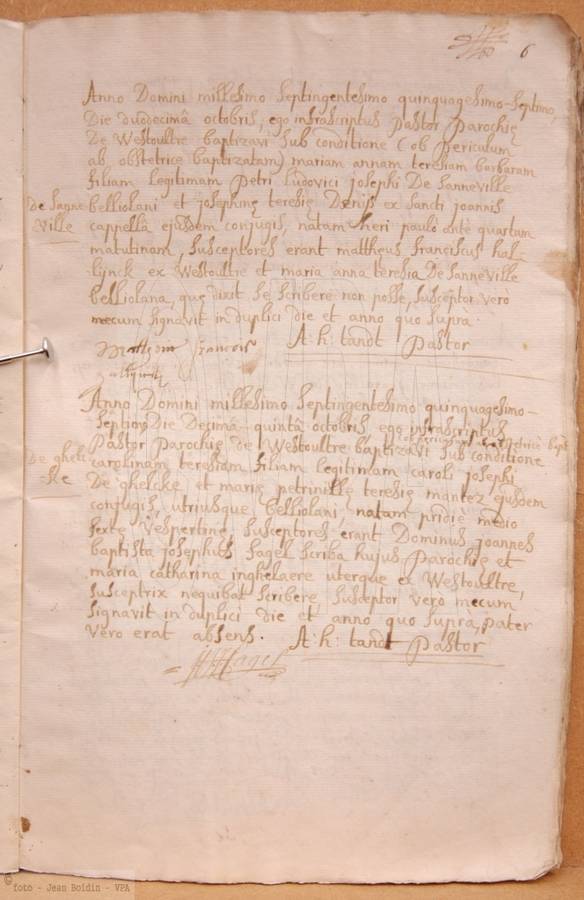 6
Anno Domini millesimo septingentesimo quinquagesimo-septimo,
Die duodecimâ octobris, ego infrascriptus Pastor Parochię
De Westoultre baptizavi sub conditione (ob periculum
ab obstetrice baptizatam) mariam annam teresiam barbaram
filiam legitimam Petri Ludovici josephi De Sanneville
De Sanne belliolani et josephinę teresię Denijs ex sancti joannis
ville cappellâ ejusdem conjugis, natam heri paulo ante quartam
matutinam, susceptores erant mattheus franciscus hal-
lijnck ex Westoultre et maria anna teresia De Sanneville
belliolana, quę dixit se scribere non posse, susceptor vero
mecum signavit in duplici die et anno quo suprà.
francois A: h: tandt Pastor
Anno Domini millesimo septingentesimo quinquagesimo-
septimo Die Decimâ-quintâ octobris ego infrascriptus
Pastor Parochię de Westoultre baptizavi sub conditione
De ghelc carolinam teresiam filiam legitimam caroli josephi
ke De ghelcke et marię petrinillę teresię mantez ejusdem
conjugis, utriusque belliolani, natam pridie medio
sextę vespertinę, susceptores erant Dominus joannes
baptista josephus fagel scriba hujus Parochię et
maria catharina inghelaere uterque ex Westoultre,
susceptrix nequibat scribere susceptor vero mecum
signavit in duplici die et anno quo suprà, pater
vero erat absens. A: h: tandt Pastor
fagel
© foto - Jean Boidin - VPA